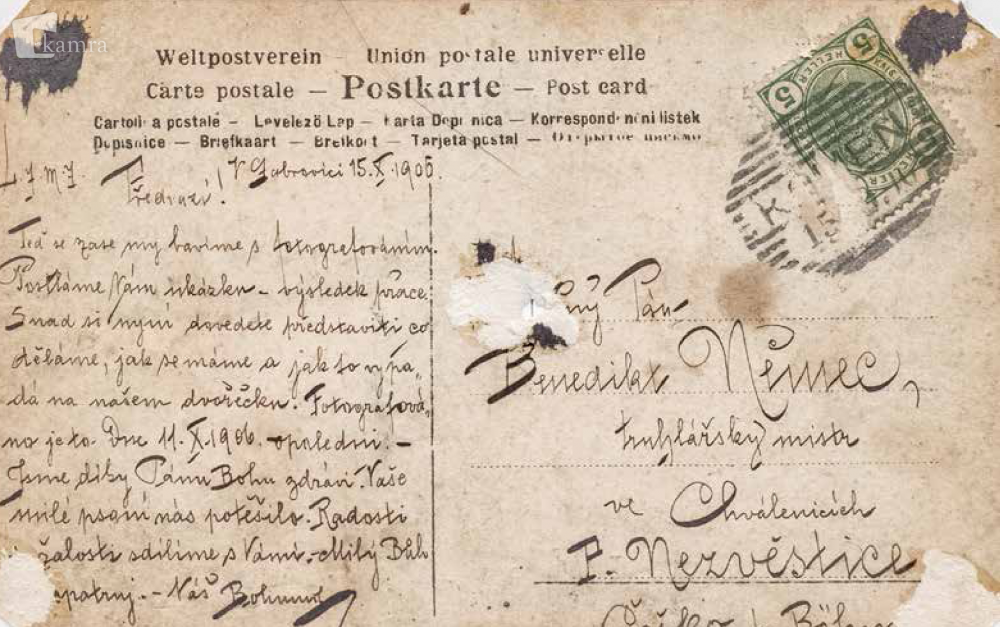 kamra
Weltpostverein Union postale universelle
Carte postale — Postkarte — Post card
Cartolina postale — Levelező Lap — Karta Dopisnica — Korrespondenční lístek
Dopisnice — Briefkaart — Brefkort — Tarjeta postal — Открытое письмо
V Gabrovici 15.X.1906.
Předrazí!
Teď se zase my bavíme s fotografováním.
Posíláme Vám ukázku - výsledek práce.
Snad si nyní dovedete představiti co
děláme, jak se máme a jak to vypa-
dá na našem dvorečku. Fotografová-
no je to. Dne 11.X.1906. - opoledni. -
Jsme díky Pánu Bohu zdrávi. Vaše
milé psaní nás potěšilo. Radosti
žalosti sdílíme s Vámi. - Milý Bůh
opatruj. - Váš Bohumil
5 HELLER 5
ný Pán
Benedikt Němec,
truhlářský mistr
ve Chválenicích
P. Nezvěstice